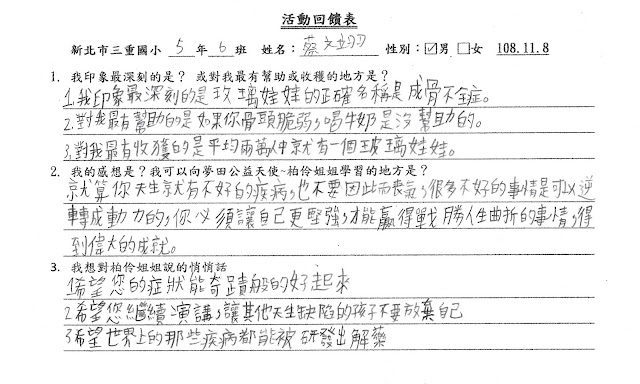 活動回饋表
新北市三重國小 5 年 6 班 姓名：蔡文翊 性別：☑男 □女 108.11.8
1. 我印象最深刻的是？ 或對我最有幫助或收穫的地方是？
1.我印象最深刻的是玻璃娃娃的正確名稱是成骨不全症。
2.對我最有幫助的是如果你骨頭脆弱，喝牛奶是沒幫助的。
3.對我最有收獲的是平均兩萬人中就有一個玻璃娃娃。
2. 我的感想是？我可以向夢田公益天使~柏伶姐姐學習的地方是？
就算你天生就有不好的疾病，也不要因此而喪氣，很多不好的事情是可以逆
轉成動力的，你必須讓自己更堅強，才能贏得戰勝人生曲折的事情，得
到偉大的成就。
3. 我想對柏伶姐姐說的悄悄話
1希望您的症狀能奇蹟般的好起來
2希望您繼續演講，讓其他天生缺陷的孩子不要放棄自己
3希望世界上的那些疾病都能被研發出解藥